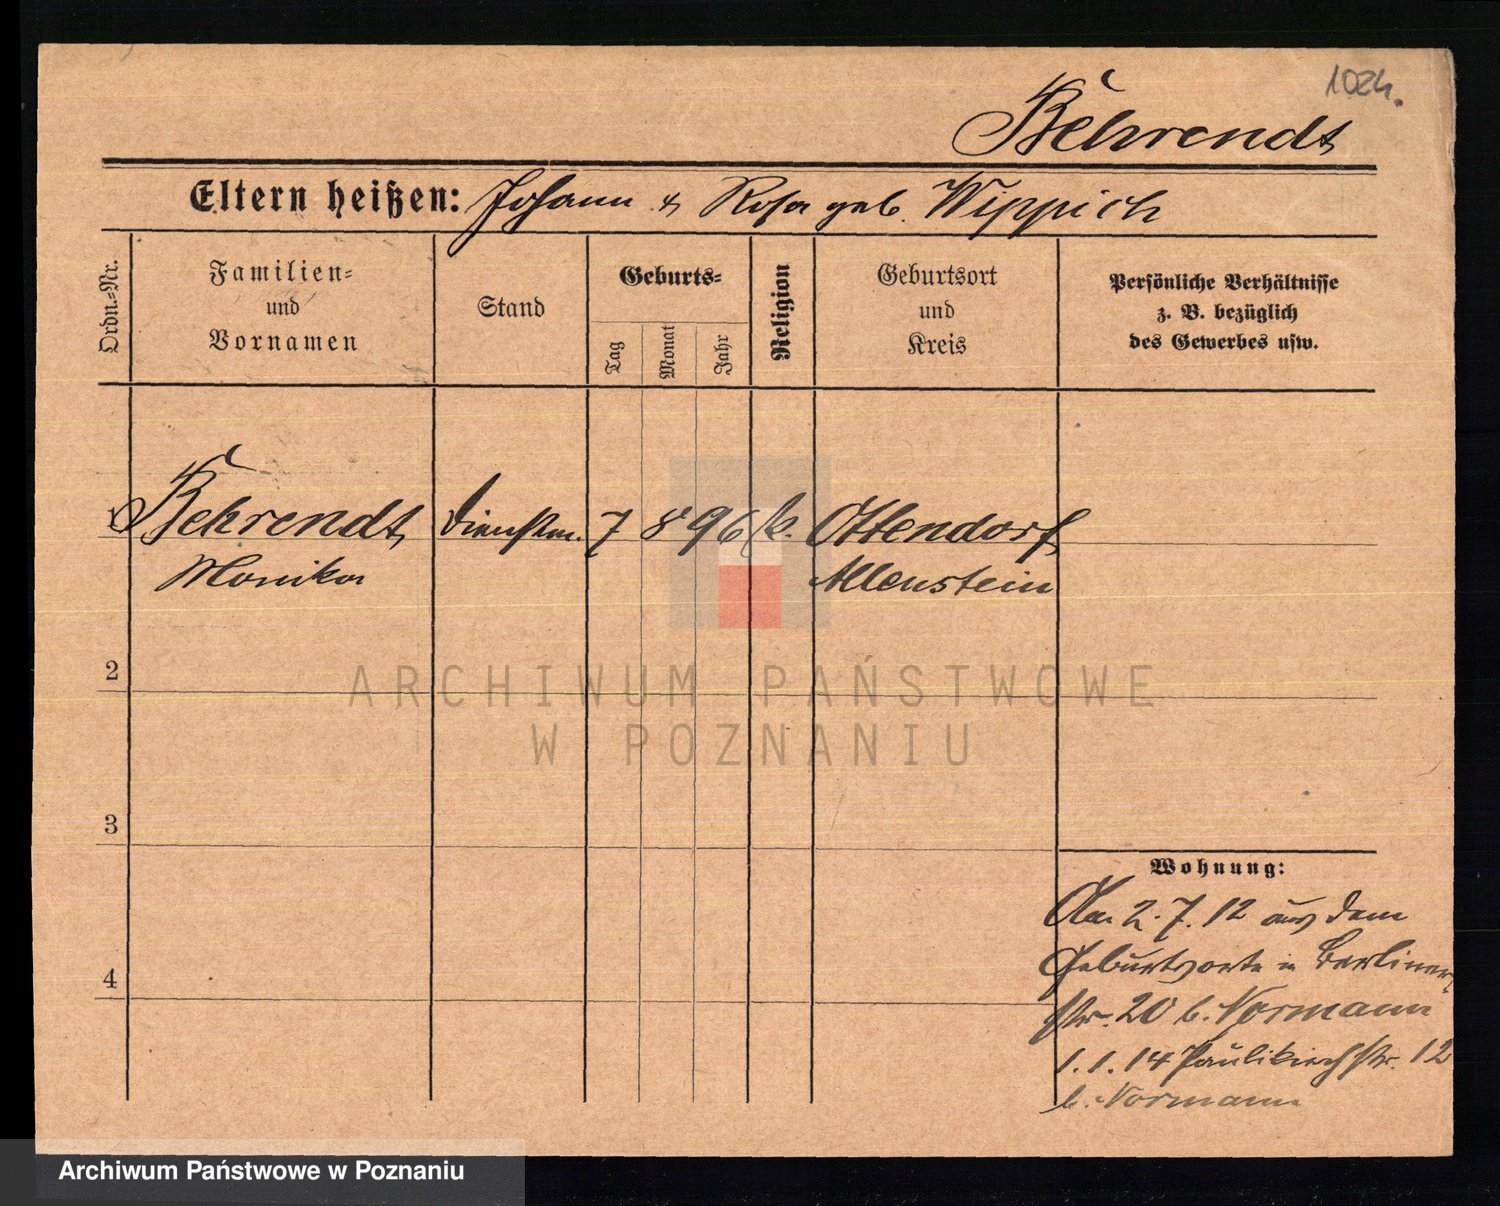 1024.
Behrendt
Eltern heißen: Johann & Rosa geb. Wippich
Ordn.-Nr.
Familien-
und
Vornamen
Stand
Geburts-
Tag
Monat
Jahr
Religion
Geburtsort
und
Kreis
Persönliche Verhältnisse
z. B. bezüglich
des Gewerbes usw.
1 Behrendt, Dienstm. 7 8 96 k. Ottendorf
Monika Allenstein
2
3
4
Wohnung:
Am 2.7.12 aus dem
Geburtsorte in Berliner-
str. 20 b. Normann
1.1.14 Paulikirchstr. 12
b. Normann
ARCHIWUM PAŃSTWOWE
W POZNANIU
Archiwum Państwowe w Poznaniu